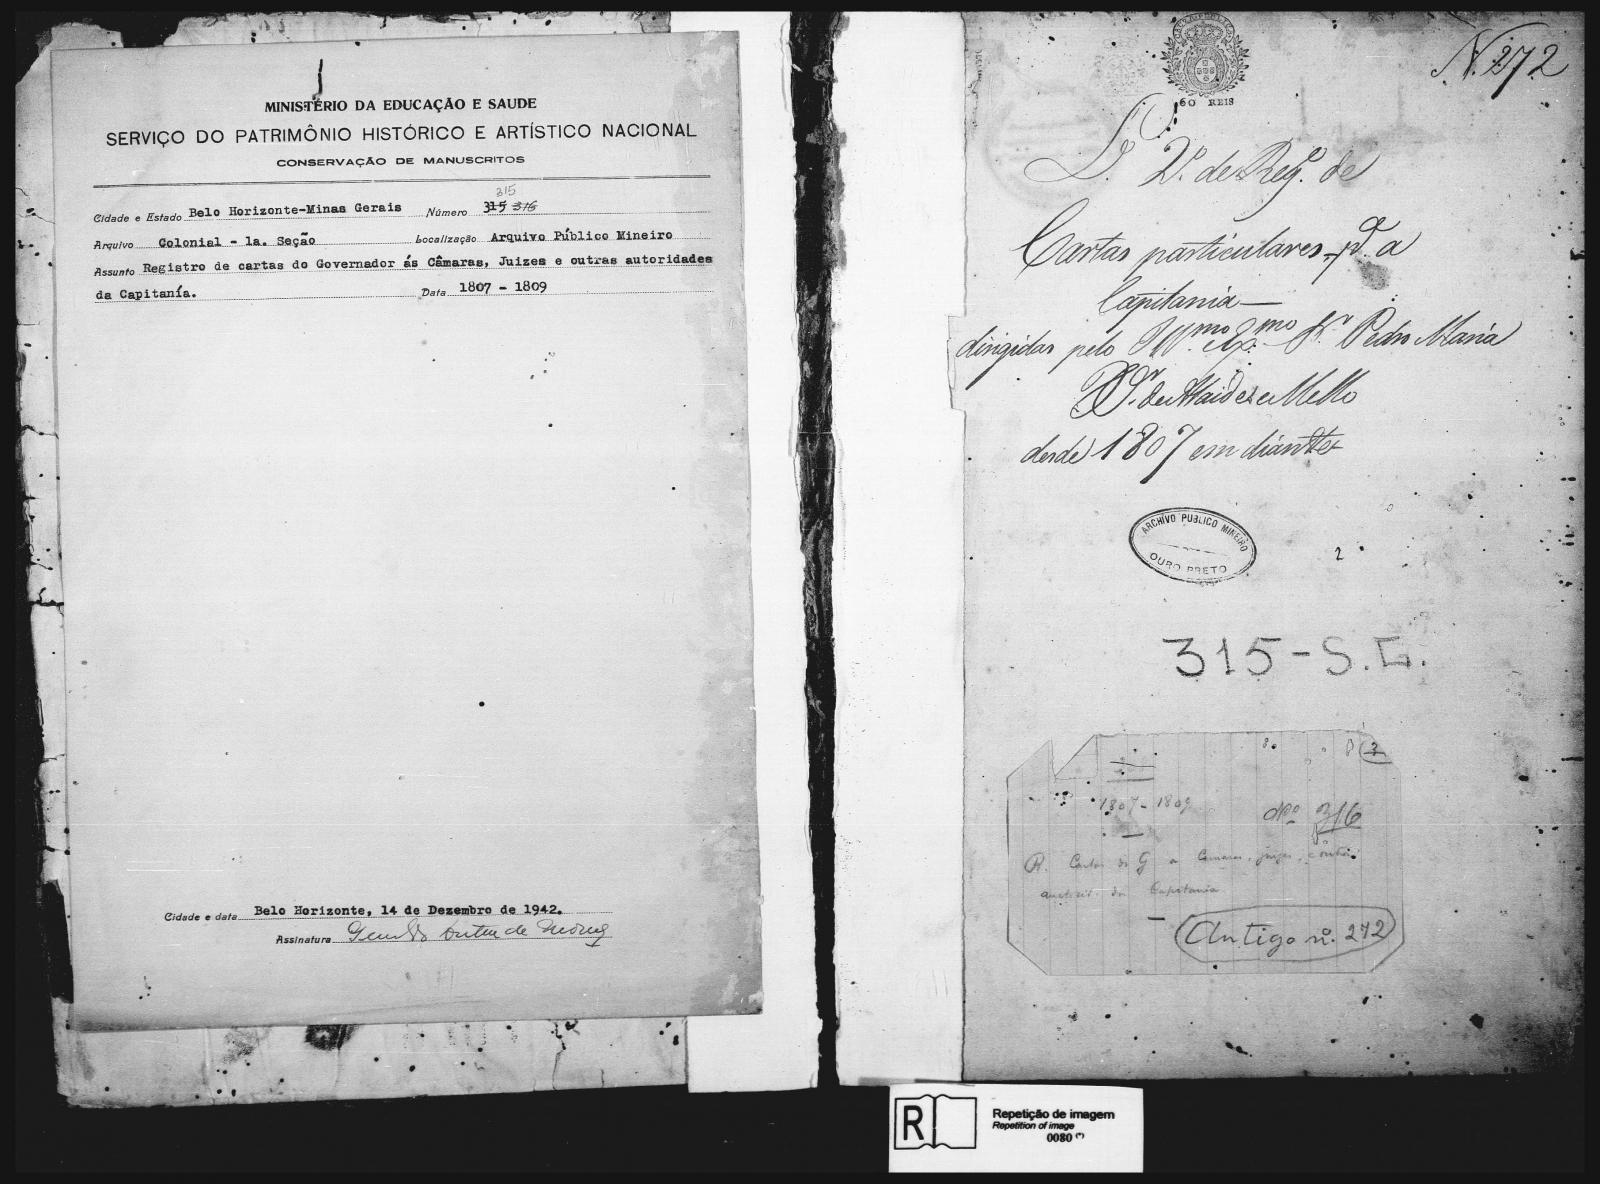 MINISTÉRIO DA EDUCAÇÃO E SAUDE
SERVIÇO DO PATRIMÔNIO HISTÓRICO E ARTÍSTICO NACIONAL
CONSERVAÇÃO DE MANUSCRITOS
315
Cidade e Estado Belo Horizonte-Minas Gerais Número 315 316
Arquivo Colonial - 1a. Seção Localização Arquivo Público Mineiro
Assunto Registro de cartas do Governador ás Câmaras, Juizes e outras autoridades
da Capitanía. Data 1807 - 1809
Cidade e data Belo Horizonte, 14 de Dezembro de 1942.
Assinatura
60 REIS
N. 272
L. 2º. de Reg. de
Cartas particulares pª. a
Capitania
dirigidas pelo Illmo. Exmo. Sr. Pedro Maria
Xer. de Ataide e Mello
desde 1807 em diante
ARCHIVO PUBLICO MINEIRO
OURO PRETO
2
315-S.G.
3
1807-1809
nº 316
R. Cartas do G a Camaras, juizes, e outras
autorid. da Capitania
Antigo nº. 272
R
Repetição de imagem
Repetition of image
0080 (*)